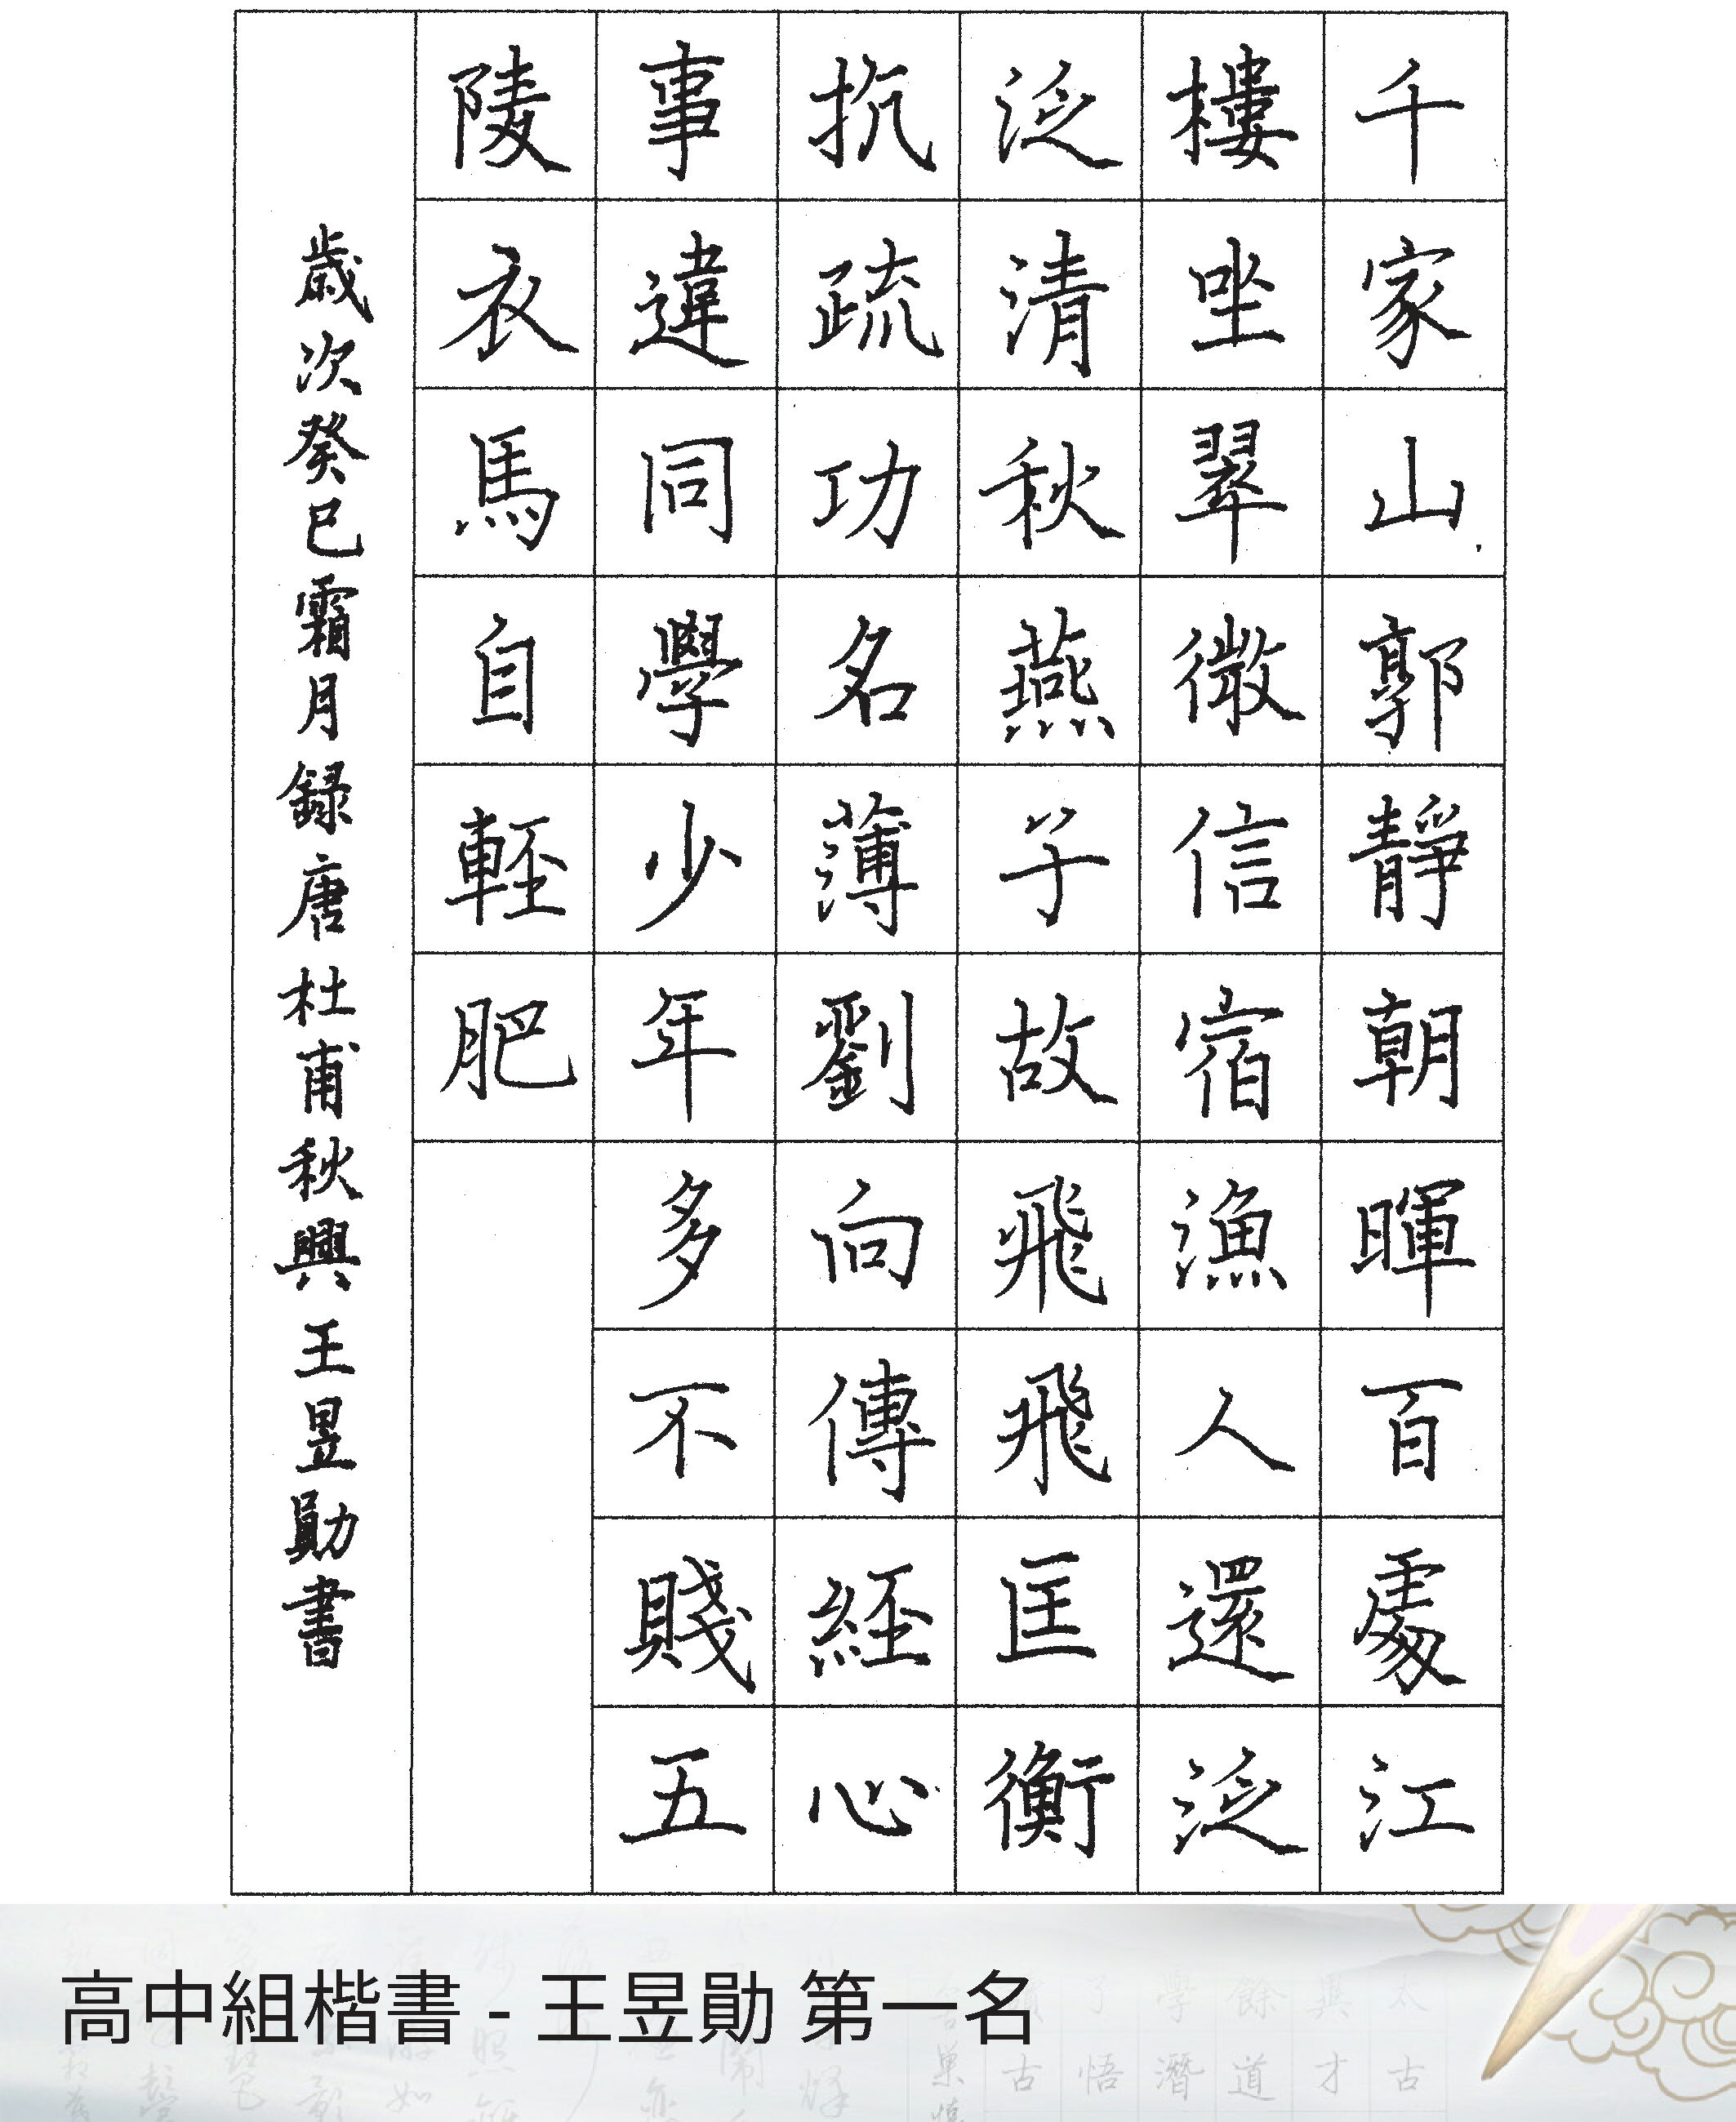 千家山郭靜朝暉百處江
樓坐翠微信宿漁人還泛
泛清秋燕子故飛飛匡衡
抗疏功名薄劉向傳經心
事違同學少年多不賤五
陵衣馬自輕肥
歲次癸巳霜月録唐杜甫秋興王昱勛書
高中組楷書 - 王昱勛 第一名
古 悟 潛 道 才 古